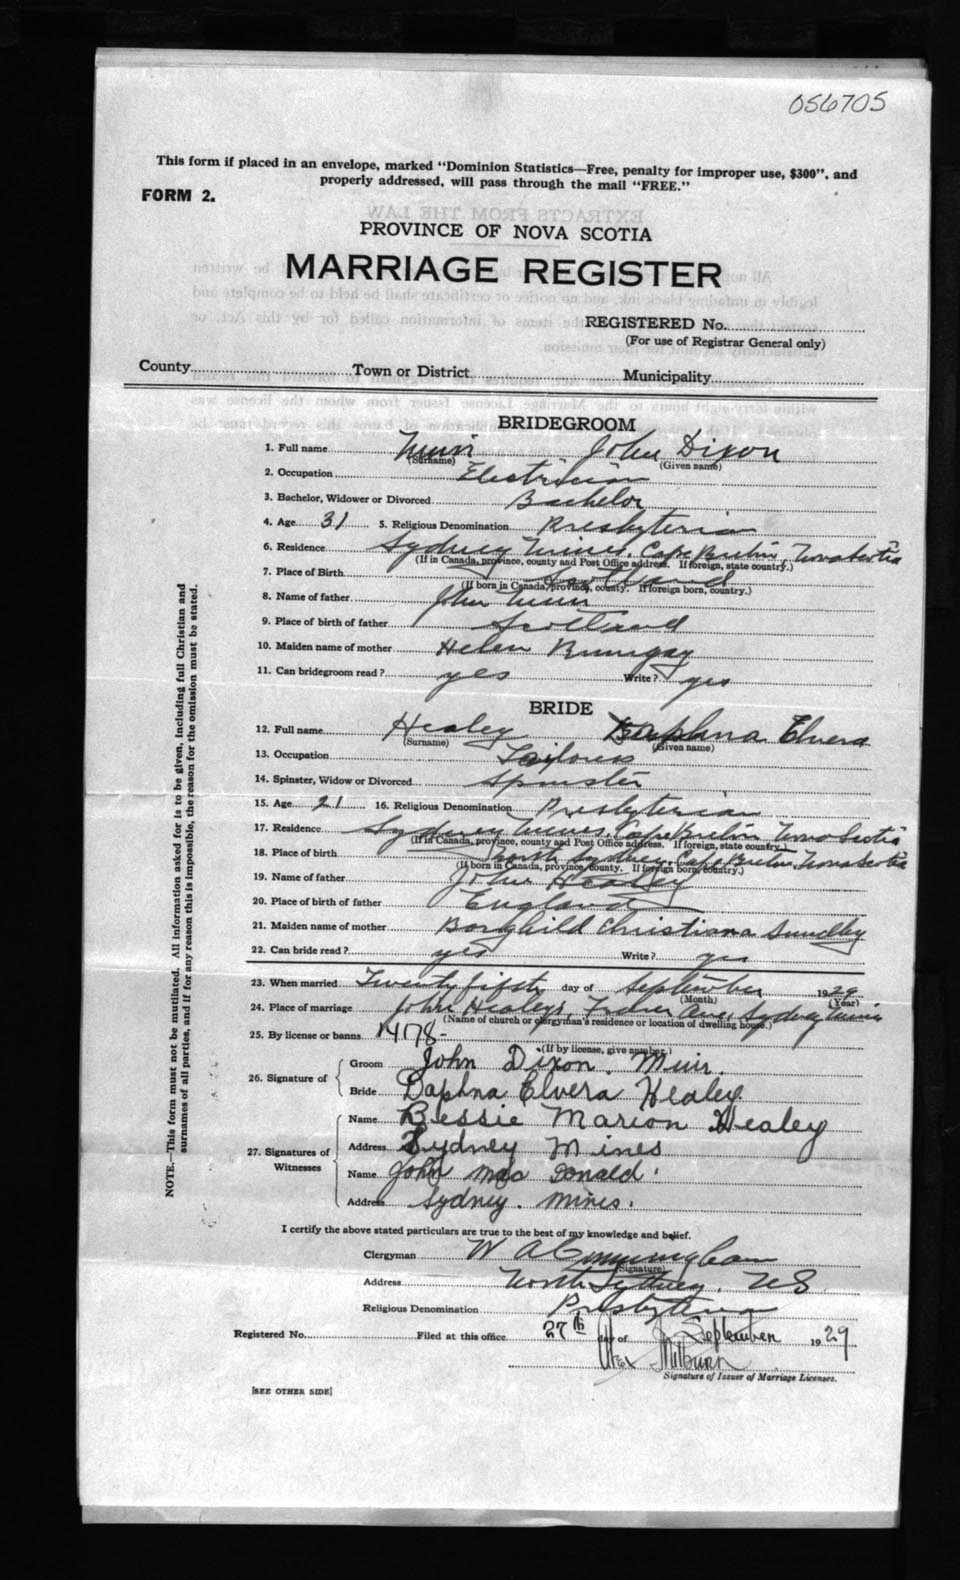 056705
This form if placed in an envelope, marked "Dominion Statistics—Free, penalty for improper use, $300", and
properly addressed, will pass through the mail "FREE."
FORM 2.
PROVINCE OF NOVA SCOTIA
MARRIAGE REGISTER
REGISTERED No.
(For use of Registrar General only)
County Town or District Municipality
BRIDEGROOM
1. Full name Muir John Dixon
(Surname) (Given name)
2. Occupation Electrician
3. Bachelor, Widower or Divorced Bachelor
4. Age 31 5. Religious Denomination Presbyterian
6. Residence Sydney Mines, Cape Breton, Nova Scotia
(If in Canada, province, county and Post Office address. If foreign, state country.)
7. Place of Birth Scotland
(If born in Canada, province, county. If foreign born, country.)
8. Name of father John Muir
9. Place of birth of father Scotland
10. Maiden name of mother Helen
11. Can bridegroom read? yes Write? yes
BRIDE
12. Full name Healey Daphna Elvera
(Surname) (Given name)
13. Occupation Tailoress
14. Spinster, Widow or Divorced Spinster
15. Age 21 16. Religious Denomination Presbyterian
17. Residence Sydney Mines, Cape Breton Nova Scotia
(If in Canada, province, county and Post Office address. If foreign, state country.)
18. Place of birth North Sydney, Cape Breton, Nova Scotia
(If born in Canada, province, county. If foreign born, country.)
19. Name of father John Healey
20. Place of birth of father England
21. Maiden name of mother Borghild Christiana Sundby
22. Can bride read? yes Write? yes
23. When married Twenty fifth day of September 1929
(Month) (Year)
24. Place of marriage John Healey's, Ave, Sydney Mines
(Name of church or clergyman's residence or location of dwelling house.)
25. By license or banns 14178-
(If by license, give number.)
26. Signature of Groom John Dixon. Muir.
Bride Daphna Elvera Healey.
27. Signatures of Witnesses Name Bessie Marion Healey
Address Sydney Mines
Name John Mac Donald.
Address Sydney. Mines.
I certify the above stated particulars are true to the best of my knowledge and belief.
Clergyman W A Cunningham
(Signature)
Address North Sydney. N S
Religious Denomination Presbyterian
Registered No. Filed at this office 27th day of September 1929
Alex Milburn
Signature of Issuer of Marriage Licenses.
[SEE OTHER SIDE]
NOTE.—This form must not be mutilated. All information asked for is to be given, including full Christian and
surnames of all parties, and if for any reason this is impossible, the reason for the omission must be stated.